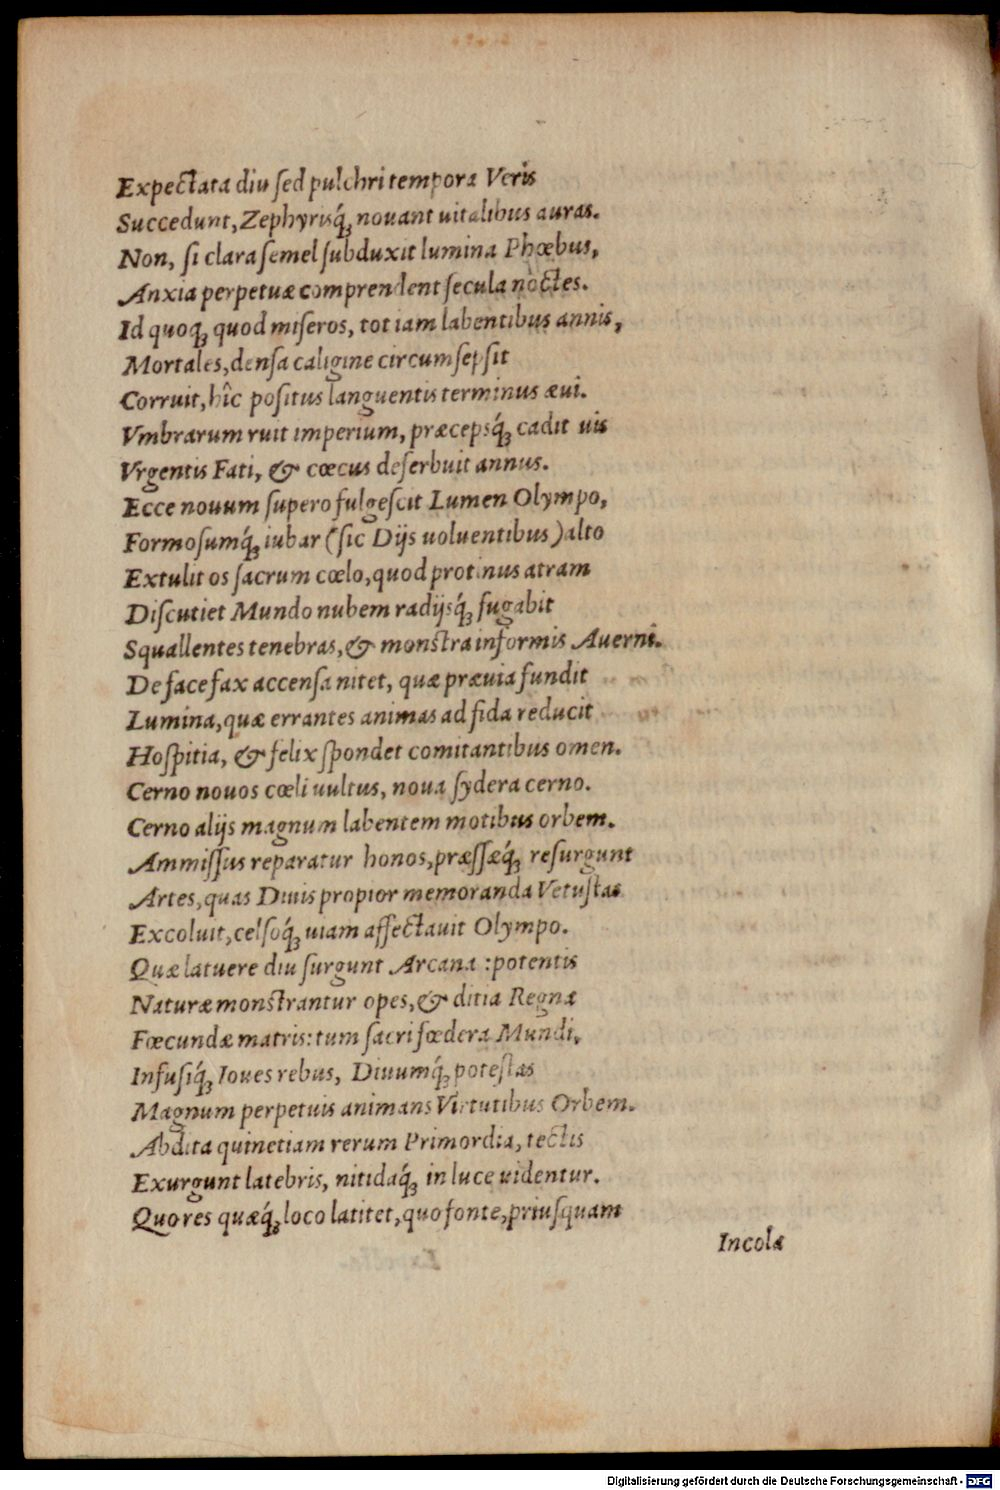 Expectata diu sed pulchri tempora Veris
Succedunt, Zephyrisq́; nouant uitalibus auras.
Non, si clara semel subduxit lumina Phœbus,
Anxia perpetuæ comprendent secula noctes.
Id quoq; quod miseros, tot iam labentibus annis,
Mortales, densa caligine circumsepsit
Corruit, hîc positus languentis terminus æui.
Vmbrarum ruit imperium, præcepsq́; cadit uis
Vrgentis Fati, & cœcus deferbuit annus.
Ecce nouum supero fulgescit Lumen Olympo,
Formosumq́; iubar (sic Dijs uoluentibus) alto
Extulit os sacrum cœlo, quod protinus atram
Discutiet Mundo nubem radijsq́; fugabit
Squallentes tenebras, & monstra informis Auerni.
De face fax accensa nitet, quæ præuia fundit
Lumina, quæ errantes animas ad fida reducit
Hospitia, & felix spondet comitantibus omen.
Cerno nouos cœli uultus, noua sydera cerno.
Cerno alijs magnum labentem motibus orbem.
Ammissus reparatur honos, præssæq́; resurgunt
Artes, quas Diuis propior memoranda Vetustas
Excoluit, celsoq́; uiam affectauit Olympo.
Quæ latuere diu surgunt Arcana: potentis
Naturæ monstrantur opes, & ditia Regna
Fœcundæ matris: tum sacri fœdera Mundi,
Infusiq́; Ioues rebus, Diuumq́; potestas
Magnum perpetuis animans Virtutibus Orbem.
Abdita quinetiam rerum Primordia, tectis
Exurgunt latebris, nitidaq́; in luce uidentur.
Quo res quæq́; loco latitet, quo fonte, priusquam
Incolæ
Digitalisierung gefördert durch die Deutsche Forschungsgemeinschaft - DFG